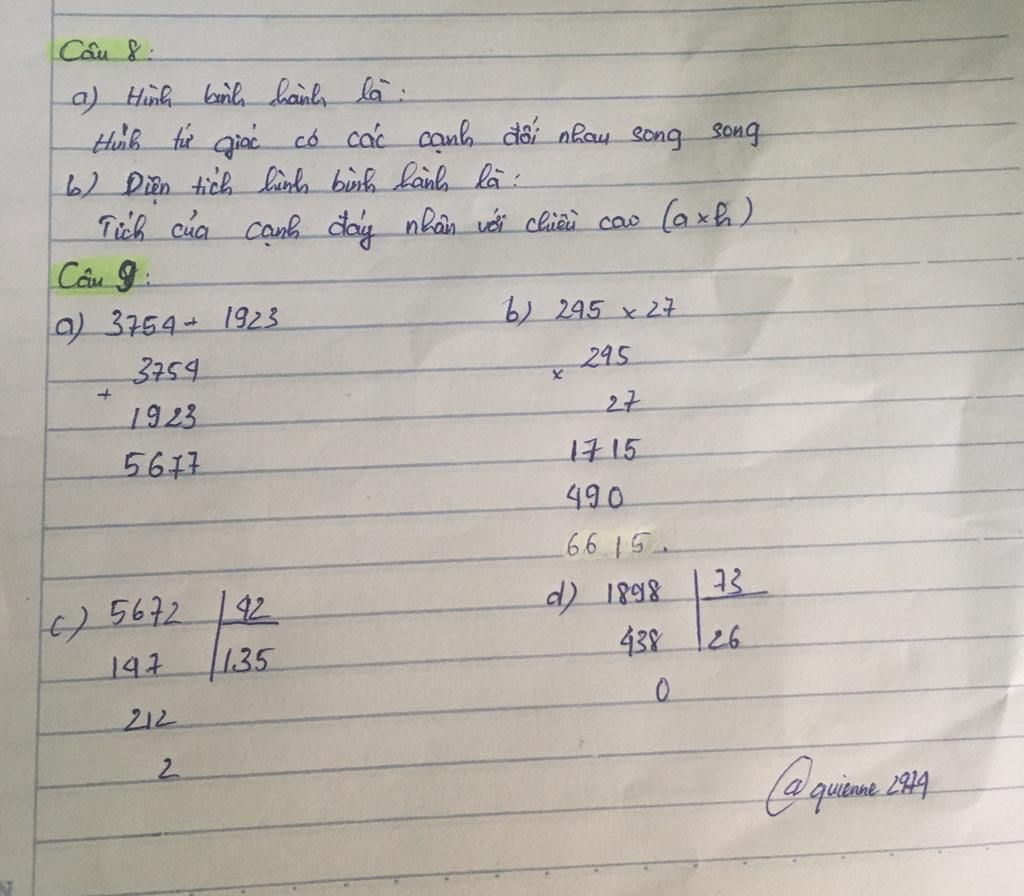 Câu 8:
a) Hình bình hành là:
Hình tứ giác có các cạnh đối nhau song song
b) Diện tích hình bình hành là:
Tích của cạnh đáy nhân với chiều cao (a x h)
Câu 9:
a) 3754 + 1923
+
3754
1923
5677
b) 245 x 27
x
245
27
1715
490
6615.
c) 5672 42
147 135
212
2
d) 1898 73
438 26
0
@quienne